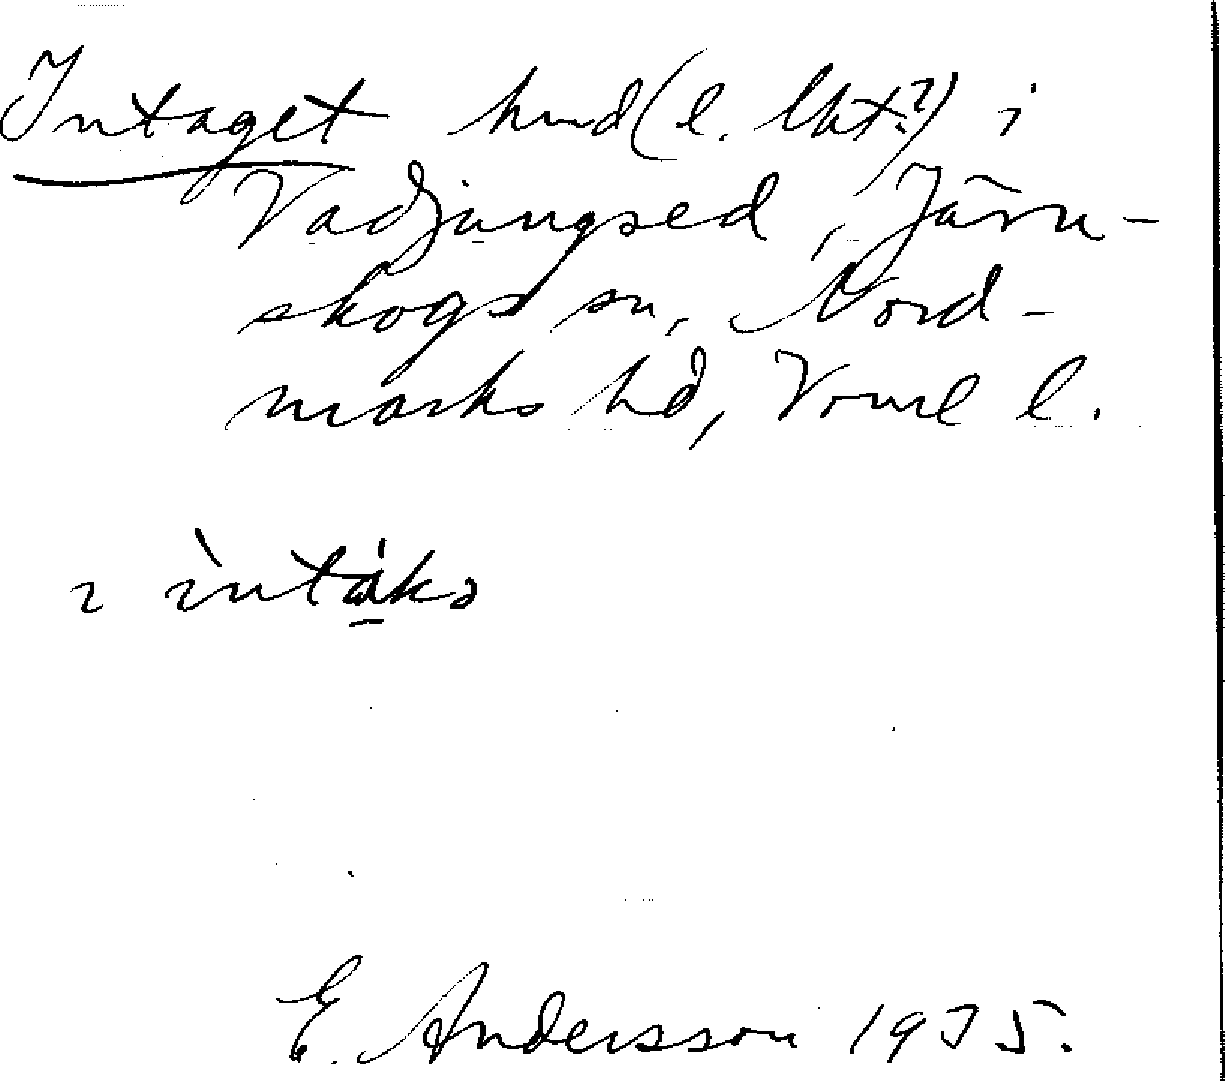 Intaget hmd (l. lht?) i
Vadjungsed, Järn-
skogs sn, Nord-
marks hd, Vrml l.
ı ìntákə
E. Andersson 1935.